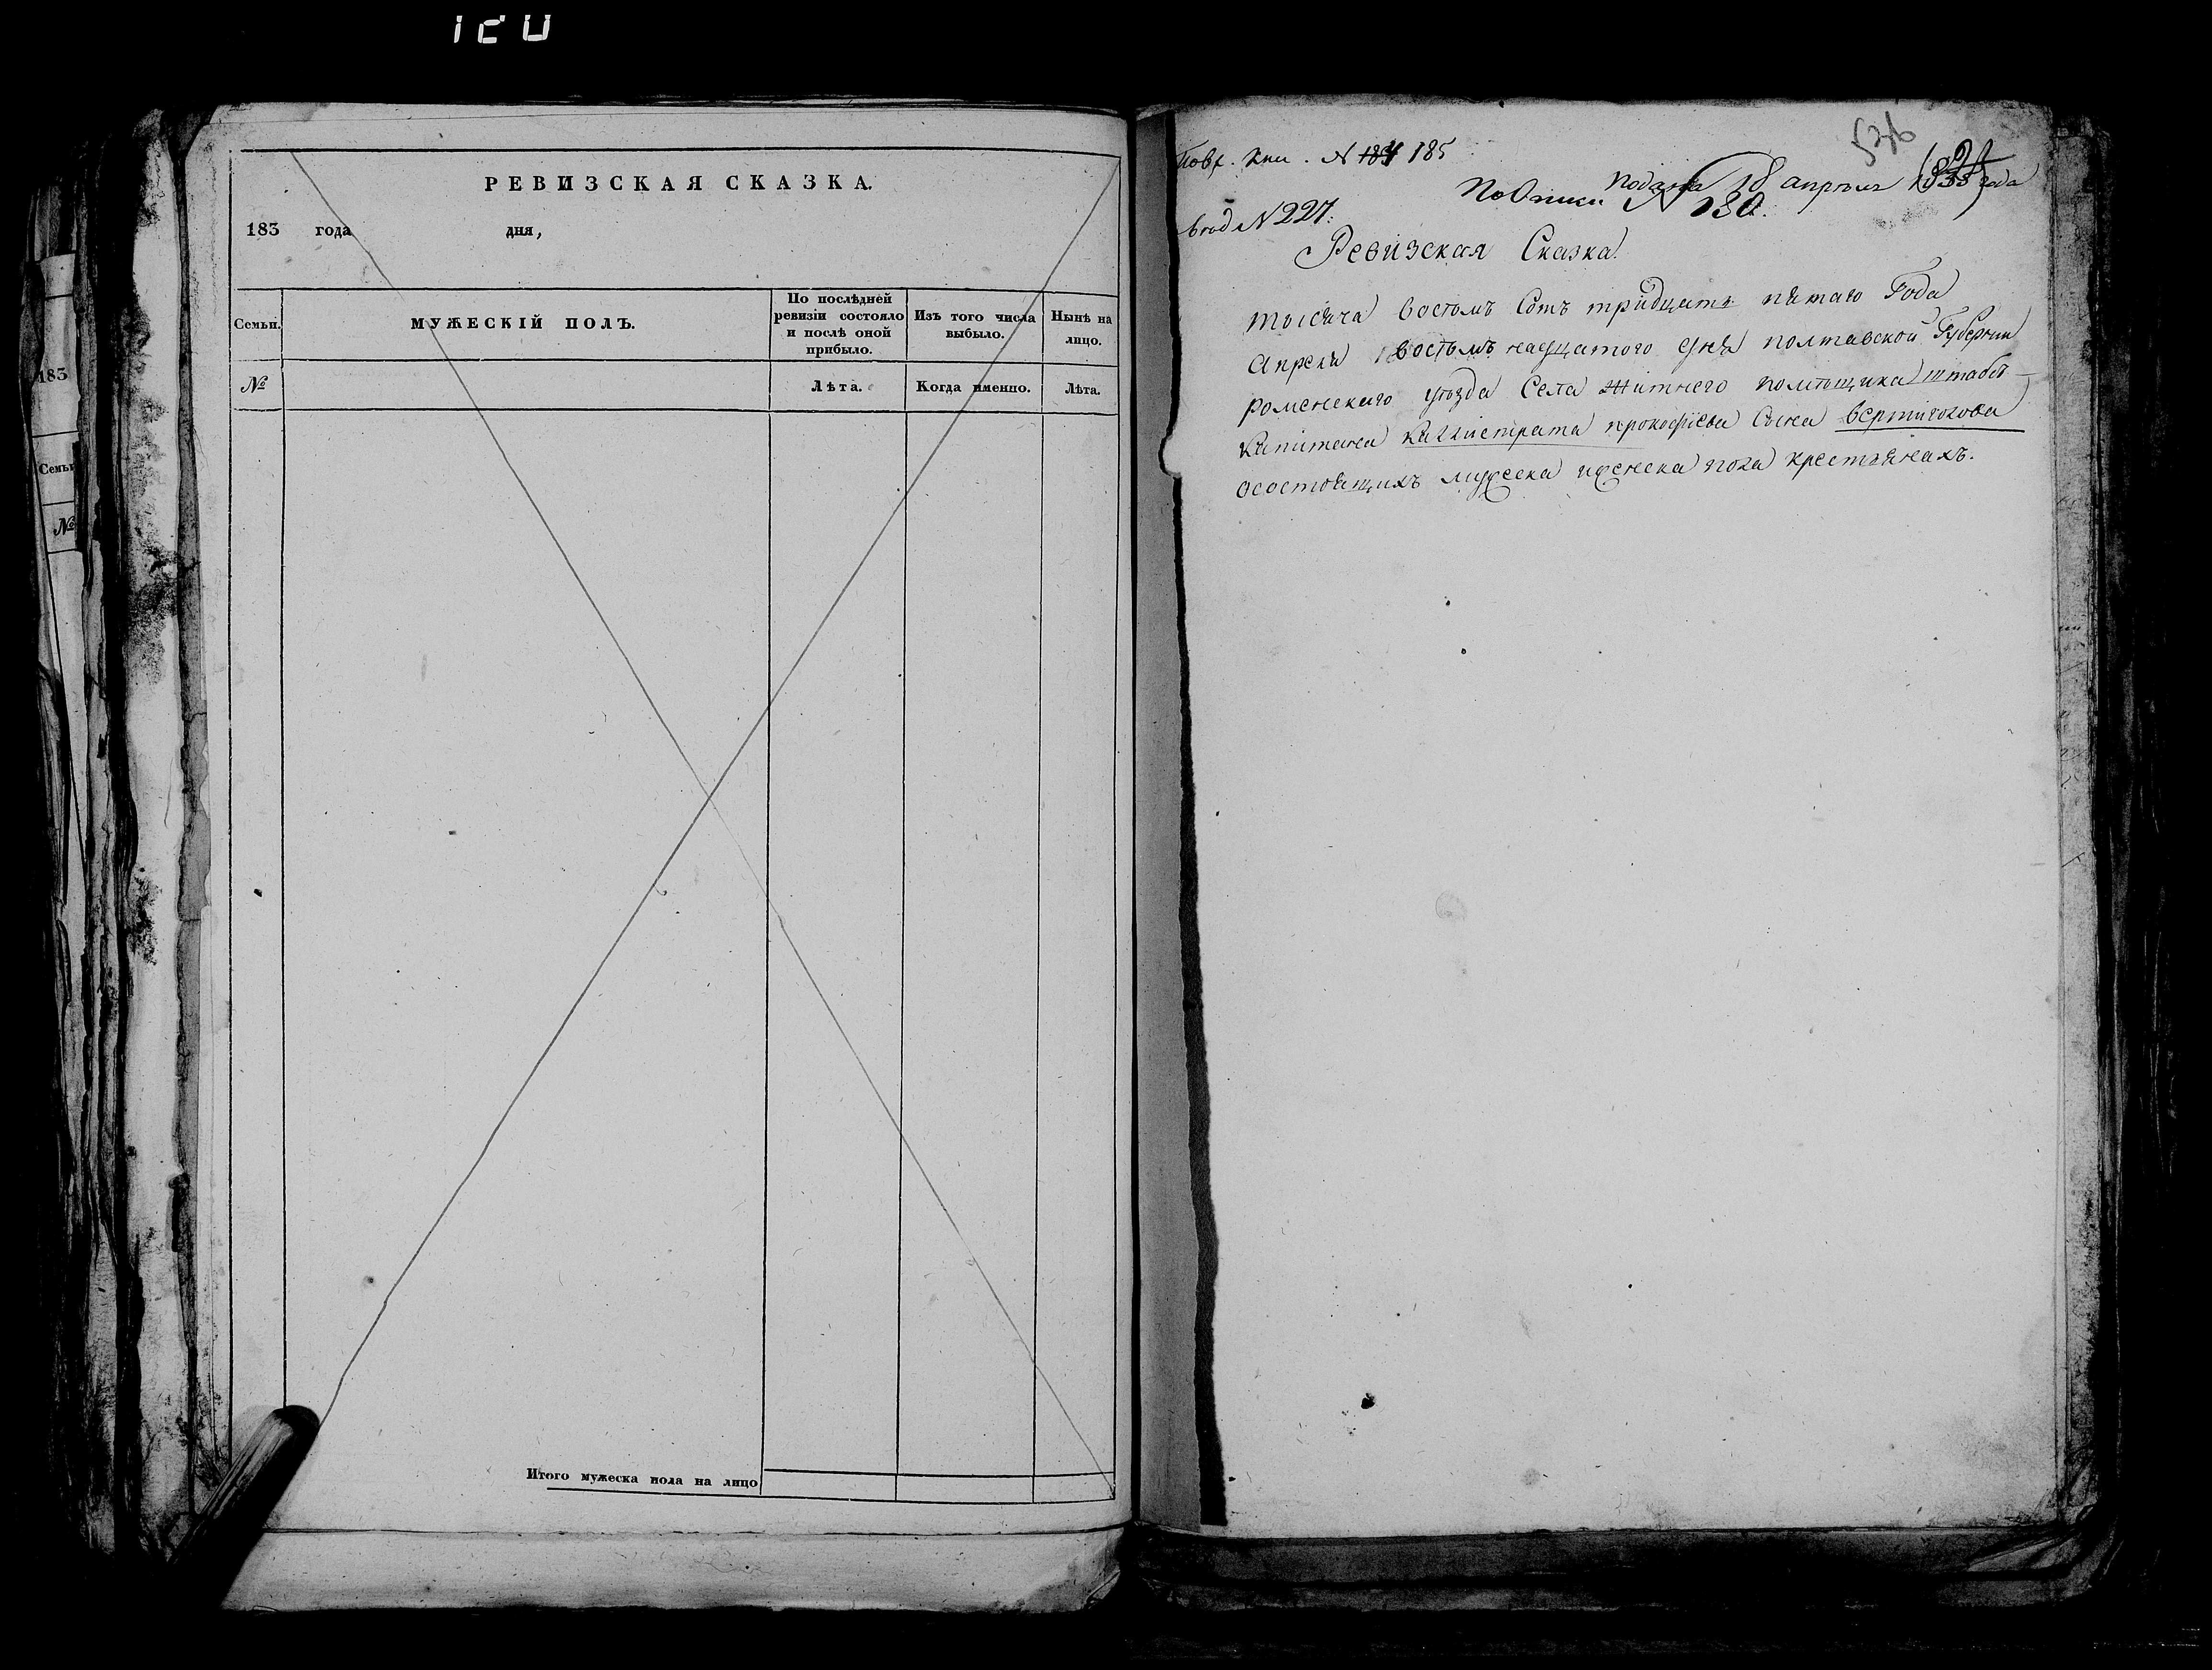 РЕВИЗСКАЯ СКАЗКА.
183 года дня,
Семьи.
МУЖЕСКІЙ ПОЛЪ.
По послѣдней
ревизіи состояло
и послѣ оной
прибыло.
Изъ того числа
выбыло.
Нынѣ на
лицо.
№
Лѣта.
Когда именно.
Лѣта.
Итого мужеска пола на лицо
183
Семьи
№
Кни. № 184 185
подана 18 апреля 1835 года
По Описи № 130.
№ 227.
Ревизская Сказка.
тысяча восемъ Сотъ тридцать пятаго Года
Апреля восемънадцатого дня полтавской Губернии
роменскаго уѣзда Села Житнего помѣщика штабсъ-
Капитана Каллистрата прокофиева Сына вертиголова
осостоящихъ мужеска иженска пола крестьянахъ.